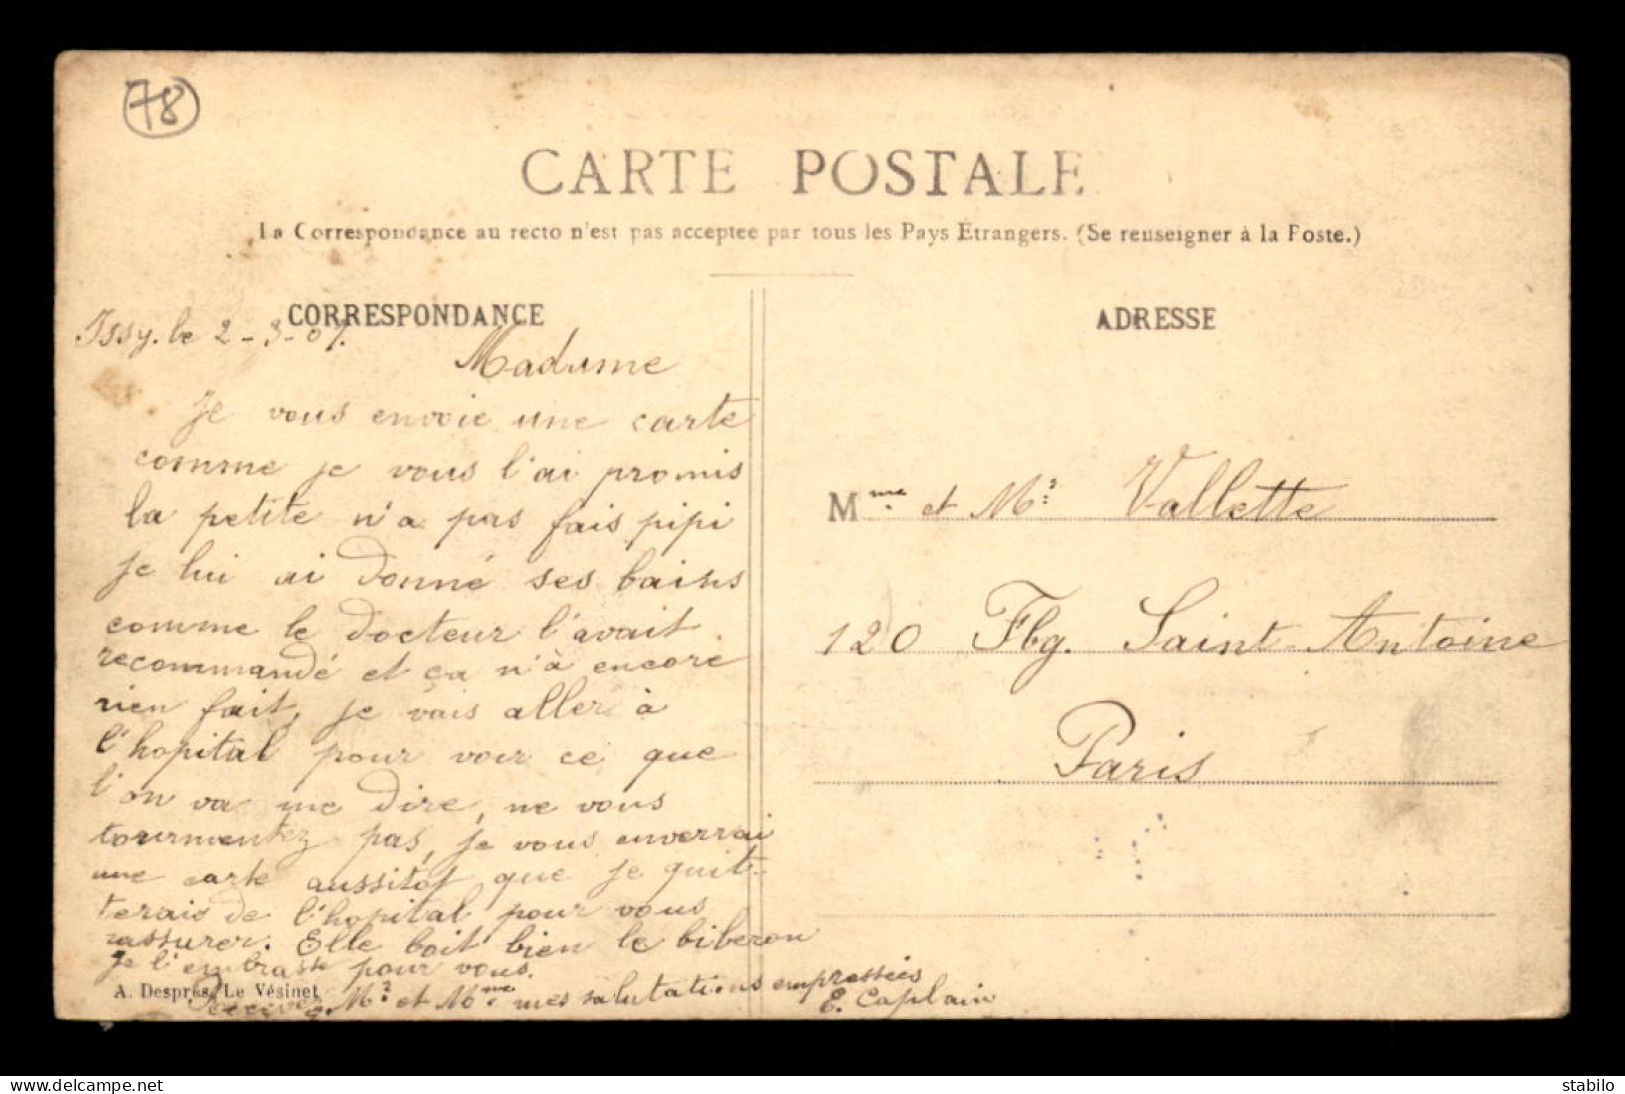 78
CARTE POSTALE
La Correspondance au recto n'est pas acceptee par tous les Pays Etrangers. (Se renseigner à la Poste.)
CORRESPONDANCE
Issy. le 2-3-07.
Madame
Je vous envoie une carte
comme je vous l'ai promis
la petite n'a pas fais pipi
je lui ai donné ses bains
comme le docteur l'avait
recommandé et ça n'à encore
rien fait, je vais aller à
l'hopital pour voir ce que
l'on va me dire, ne vous
tourmentez pas, je vous enverrai
une carte aussitot que je quit-
terais de l'hopital pour vous
rassurer. Elle boit bien le biberon
je l'embrasse pour vous.
Recevez Mr et Mme mes salutations empressées
E. Caplain
A. Després, Le Vésinet
ADRESSE
Mme et Mr Vallette
120 Fbg. Saint-Antoine
Paris
delcampe.net
stabilo